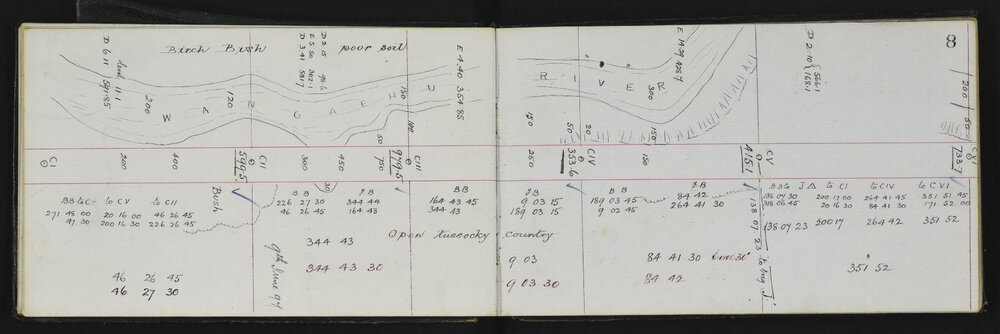 8
Birch Bush poor soil
D 6.11
level 11.1
591.85
D 2.15 98.6
E 5.50 302.1
D 3.41 581.7
E 4.40 354.85
E 14.29 428.7
D 2.10 566.1
168.1
WANGAEHU
RIVER
200
120
150
100
50
150
50
20
300
150
200
50
CI
200
400
CII
599.5
300
450
750
CIII
979.5
250
CIV
353.6
150
CV
415.1
CVI
733.7
BB to C to CV to CII
271 48 00 20 16 00 46 26 45
200 16 30 226 26 45
Bush
30
BB
226 27 30
46 26 45
FB
344 44
164 43
BB
164 43 45
344 43
FB
9 03 15
189 03 15
BB
189 03 45
9 02 45
FB
84 42
264 41 30
BB to J Δ to CI to CIV to CVI
138 07 30 200 17 00 264 41 45 351 51 45
318 06 45 20 16 30 84 41 30 171 52 00
138 07 23 200 17 264 42 351 52
138 07 23 to trig J
Open tussocky country
9th June 97
344 43
344 43 30
46 26 45
46 27 30
9 03
9 03 30
84 41 30
84 42
351 52